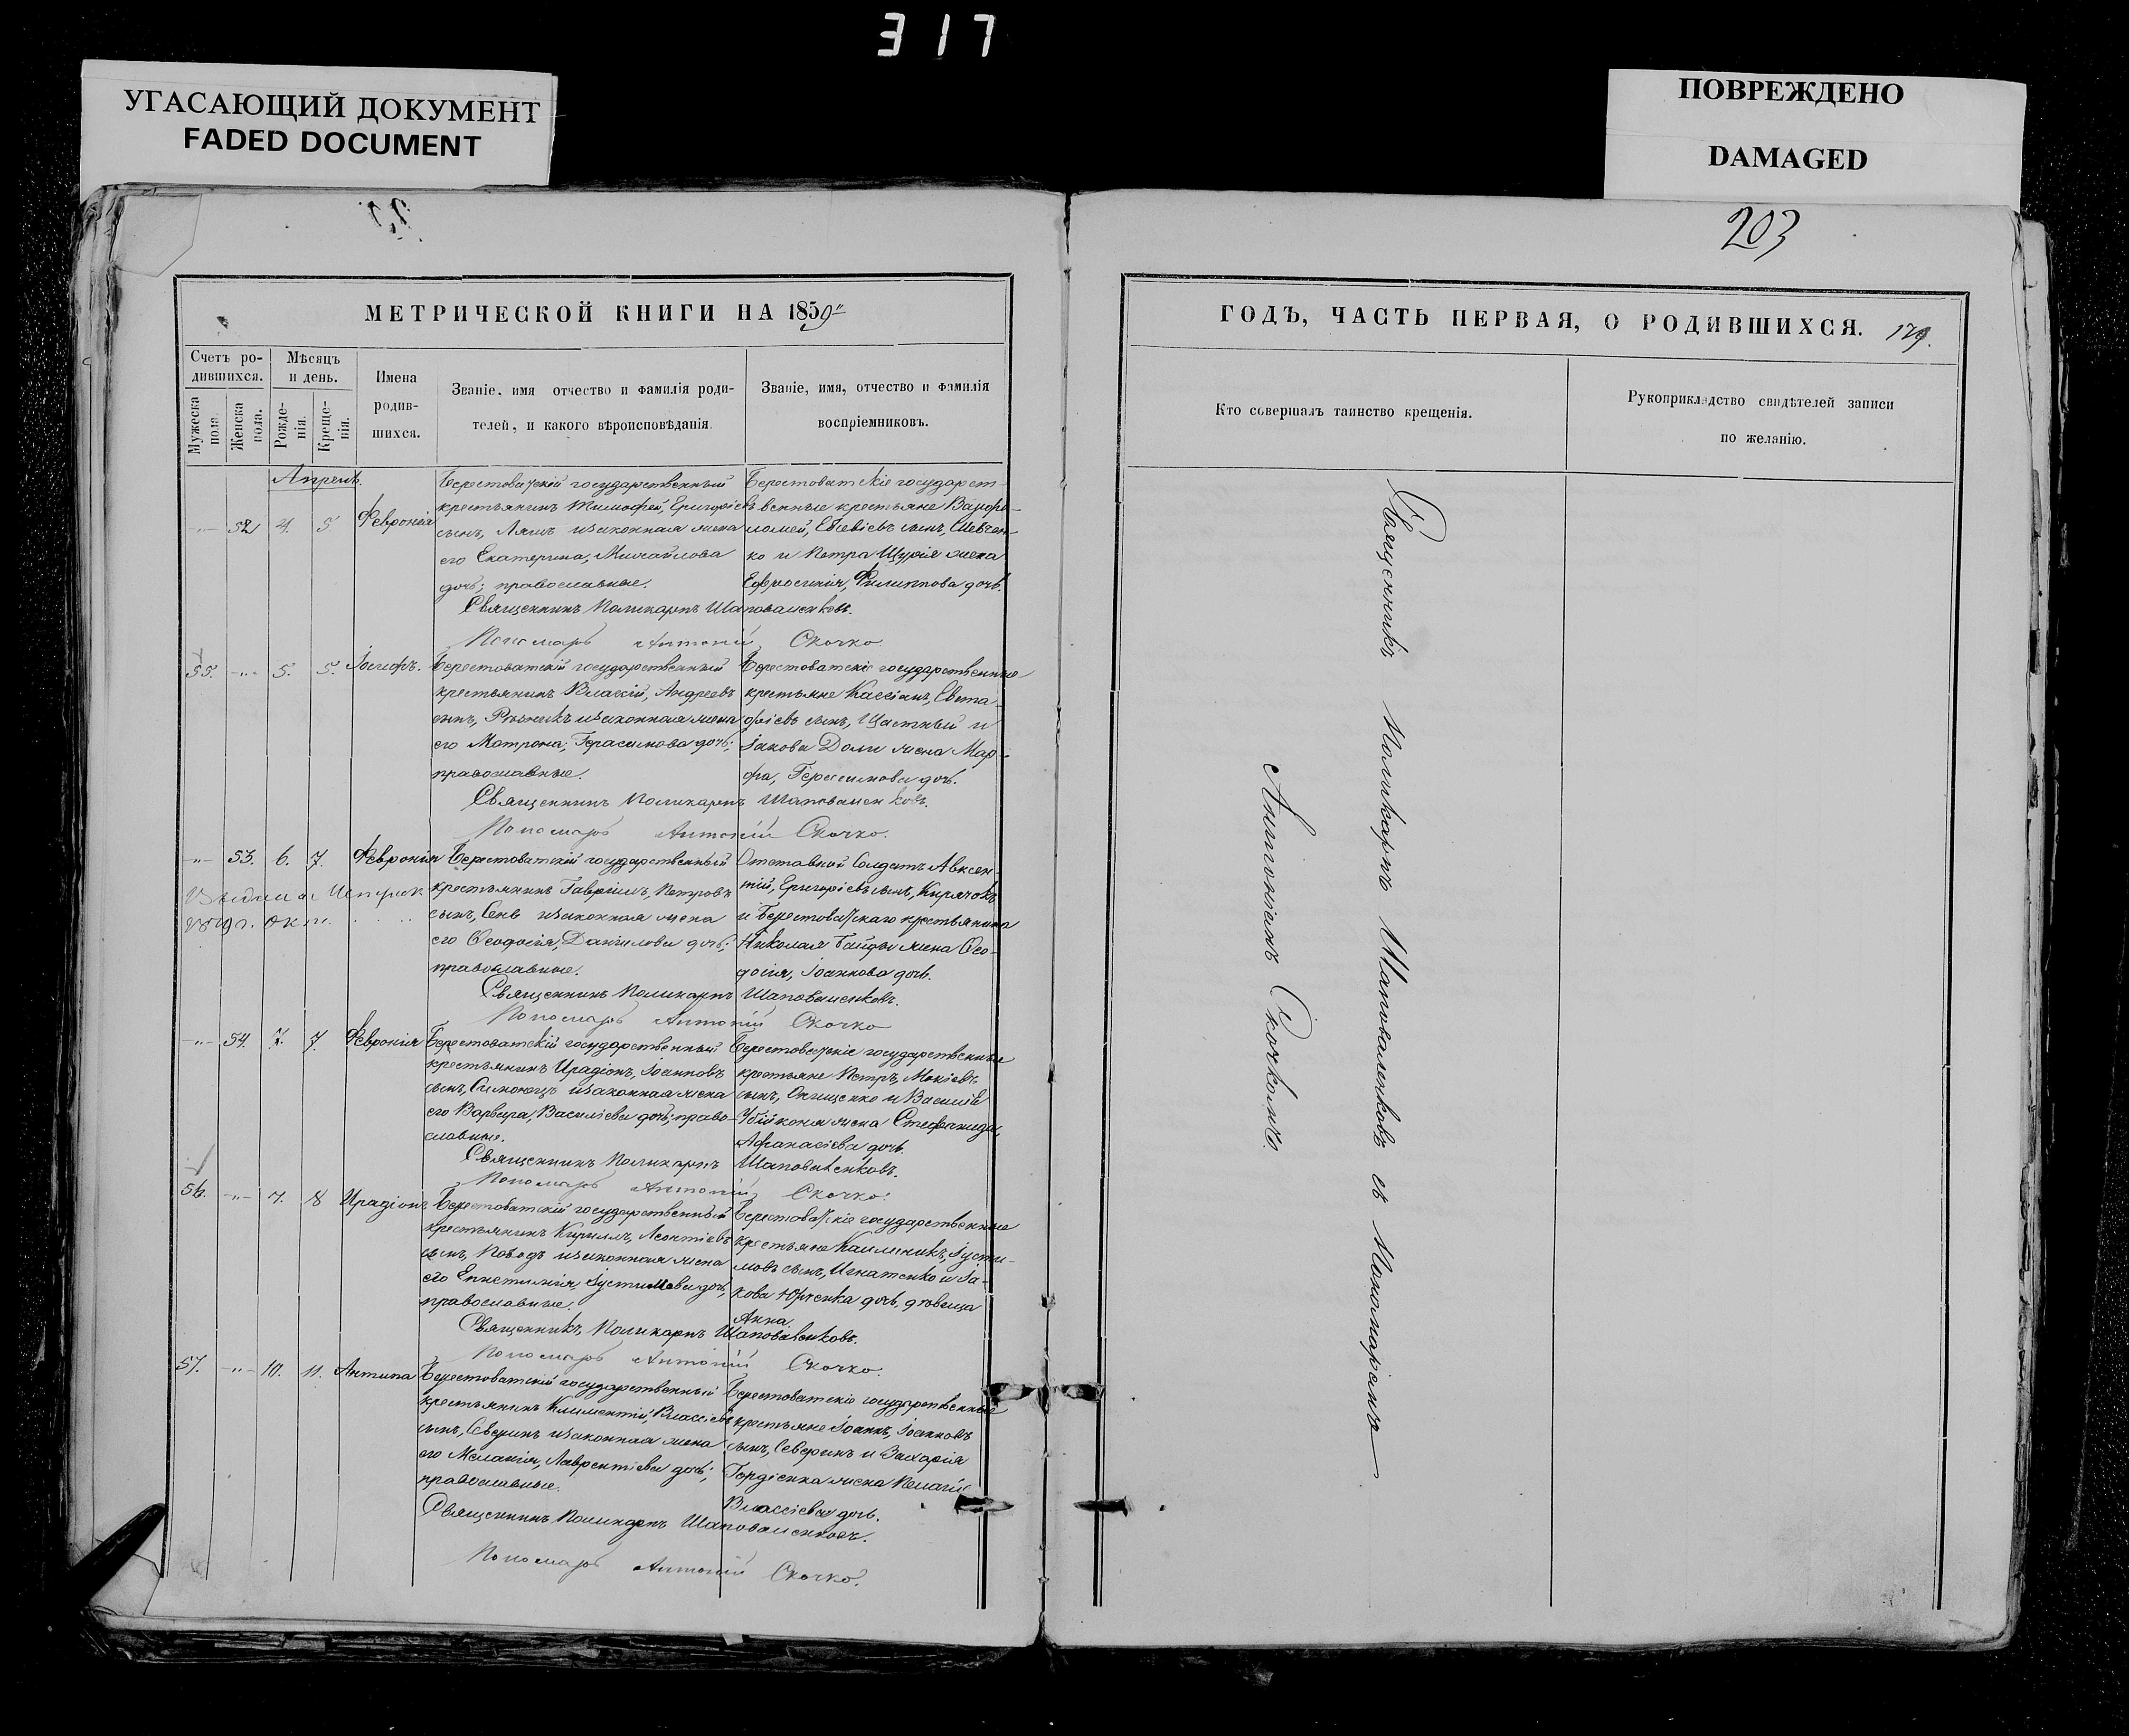 317
УГАСАЮЩИЙ ДОКУМЕНТ
FADED DOCUMENT
ПОВРЕЖДЕНО
DAMAGED
203
МЕТРИЧЕСКОЙ КНИГИ НА 1859
Счетъ ро-
дившихся.
Мужеска
пола.
Женска
пола.
Мѣсяцъ
и день.
Рожде-
нія.
Креще-
нія.
Имена
родив-
шихся.
Званіе, имя отчество и фамилія роди-
телей, и какого вѣроисповѣданія.
Званіе, имя, отчество и фамилія
воспріемниковъ.
Апрель.
52 4. 5. Февронія
Берестоватскій государственный
крестьянинъ Тимофей, Григоріевъ
сынъ, Ляшъ и законная жена
его Екатерина, Михайлова
дочь; православные.
Берестоватскіе государст-
венные крестьяне Варфо-
ломей, Евсевіевъ сынъ, Шевчен-
ко и Петра жена
Ефросинія, Филиппова дочь.
Священникъ Поликарпъ Шаповаленковъ.
Пономарь Антоній Скочко.
55. 5. 5. Іосифъ.
Берестоватскій государственный
крестьянинъ Власій, Андреевъ
сынъ, и законная жена
его Матрона, Герасимова дочь;
православные.
Берестоватскіе государственные
крестьяне Кассіанъ, Евста-
фіевъ сынъ, Щастный и
Іакова жена Мар-
фа, Герасимова дочь.
Священникъ Поликарпъ Шаповаленковъ.
Пономарь Антоній Скочко.
53. 6. 7. Февронія
Берестоватскій государственный
крестьянинъ Гавріилъ, Петровъ
сынъ, и законная жена
его Ѳеодосія, Даніилова дочь;
православные.
Отставной Солдатъ Авксен-
тій, Григоріевъ сынъ,
и Берестоватскаго крестьянина
Николая Байды жена Ѳео-
досія, Іоаннова дочь.
Священникъ Поликарпъ Шаповаленковъ.
Пономарь Антоній Скочко
54. 7. 7. Февронія
Берестоватскій государственный
крестьянинъ Иродіонъ, Іоанновъ
сынъ, и законная жена
его Варвара, Василіева дочь; право-
славные.
Берестоватскіе государственные
крестьяне Петръ, Мокіевъ
сынъ, Онищенко и Василія
жена Стефанида,
Афанасіева дочь.
Священникъ Поликарпъ Шаповаленковъ.
Пономарь Антоній Скочко.
56. 7. 8 Иродіонъ
Берестоватскій государственный
крестьянинъ Кириллъ, Леонтіевъ
сынъ, и законная жена
его Епистимія, Іустимова дочь;
православные.
Берестоватскіе государственные
крестьяне Каленикъ, Іусти-
мовъ сынъ, Игнатенко и Іа-
кова Юрченка дочь, дѣвица
Анна.
Священникъ Поликарпъ Шаповаленковъ.
Пономарь Антоній Скочко.
57. 10. 11. Антипа
Берестоватскій государственный
крестьянинъ Климентій, Власіевъ
сынъ, Северинъ и законная жена
его Меланія, Лаврентіева дочь;
православные.
Берестоватскіе государственные
крестьяне Іоаннъ, Іоанновъ
сынъ, Северинъ и Захарія
Гордіенка жена Пелагія
Власіева дочь.
Священникъ Поликарпъ Шаповаленковъ.
Пономарь Антоній Скочко.
ГОДЪ, ЧАСТЬ ПЕРВАЯ, О РОДИВШИХСЯ. 179.
Кто совершалъ таинство крещенія.
Рукоприкладство свидѣтелей записи
по желанію.
Священникъ Поликарпъ Шаповаленковъ съ Пономаремъ
Антоніемъ Скочкомъ.